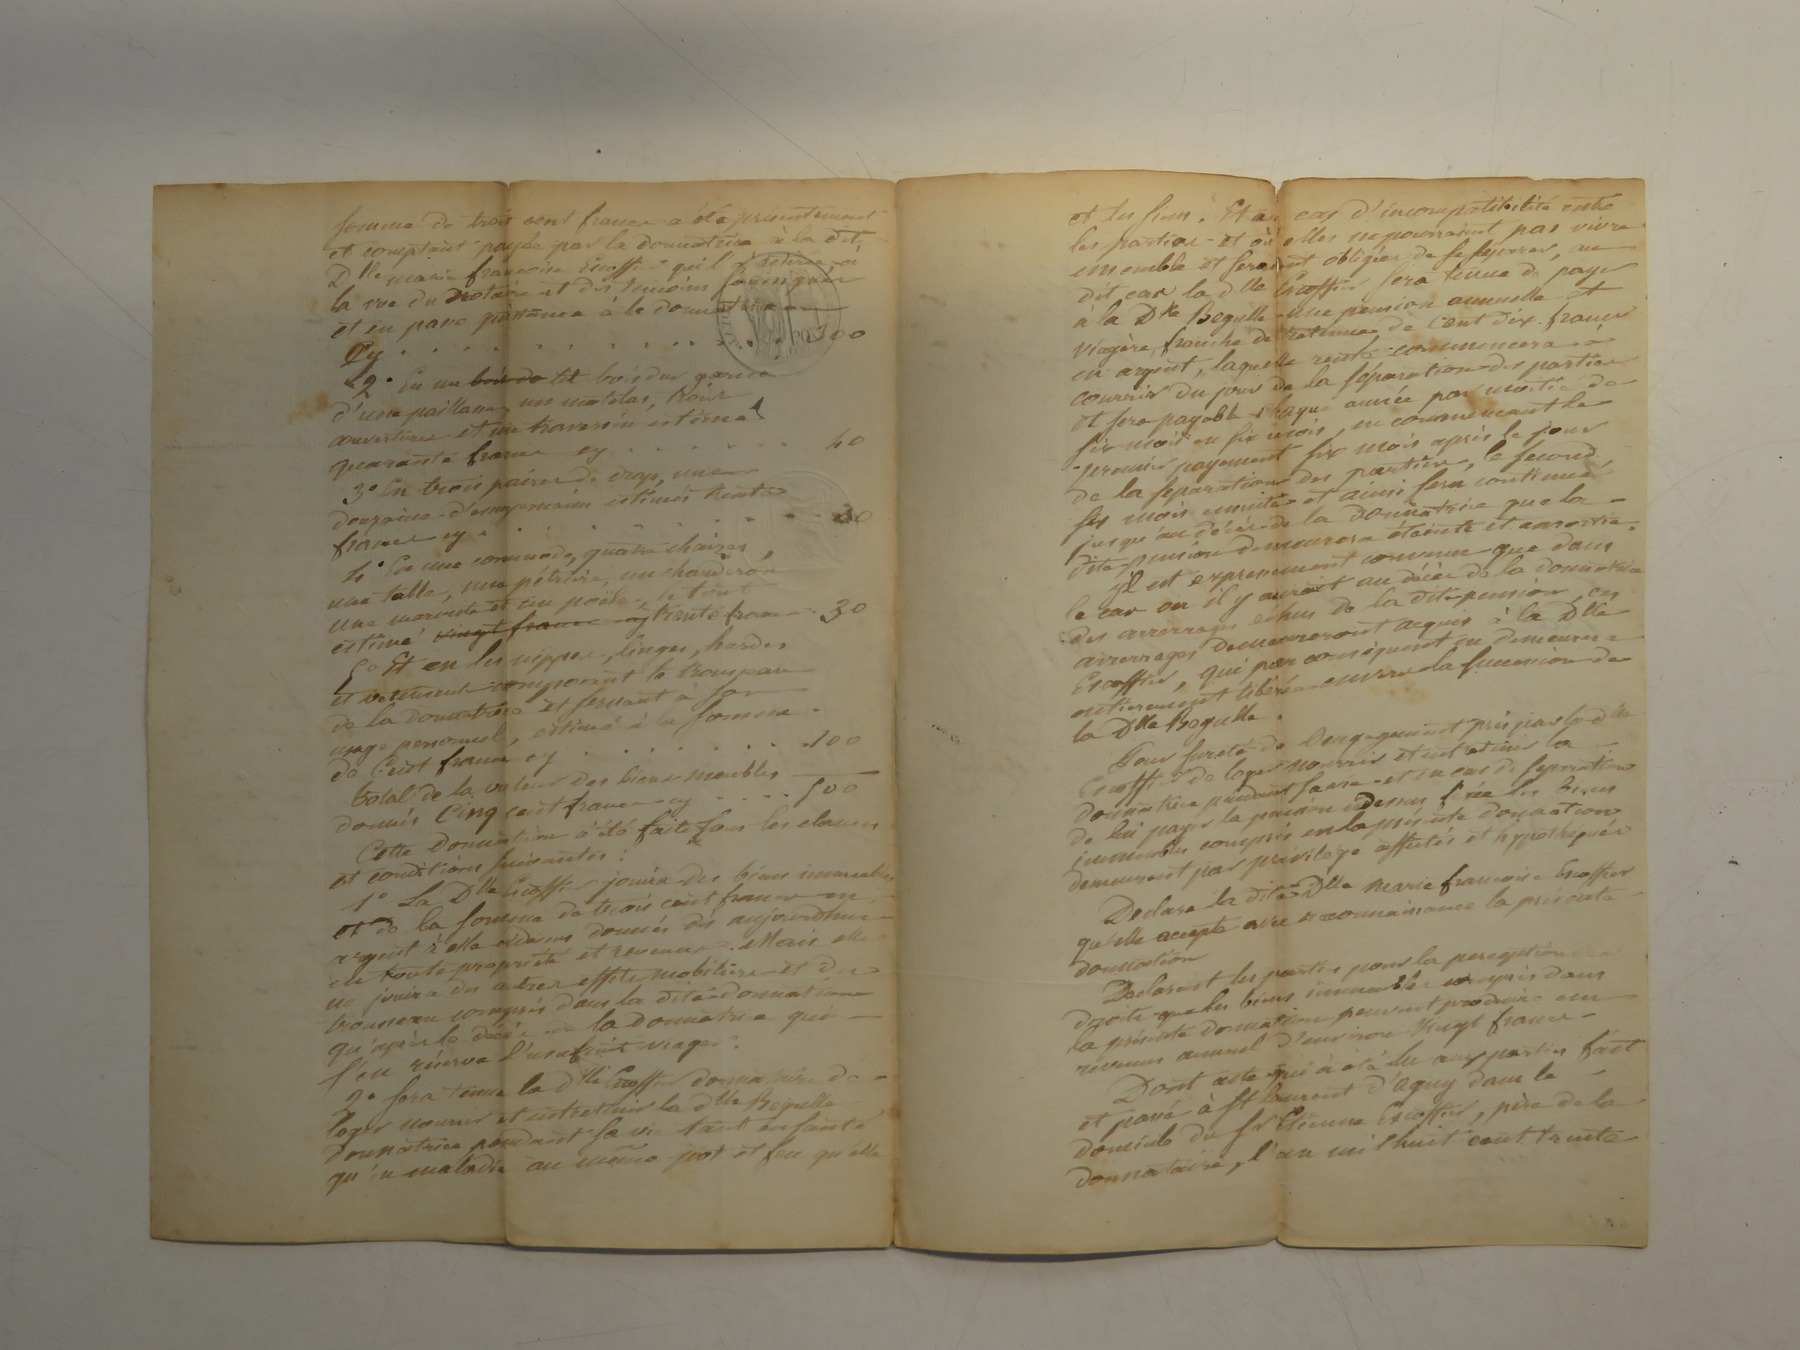 somme de trois cent francs a été présentement
et comptant payée par la donnatrice à la dite
Dlle marie françoise Escoffier qui l'a retirée a
la vue du Notaire et des temoins soussignés
et en passe quittance à le donnatrice
Cy . . . . . . . . . . 300
2° En un bois de lit bois dur garni
d'une paillasse, un matelas, trois
couvertures et un traversin estimé
quarante francs cy . . . . . . 40
3° En trois paires de drap, une
douzaine d'essuyemains estimés trente
francs cy . . . . . . . . . 30
4° En une commode, quatre chaises,
une table, une pétrière, un chauderon
une marmite et un poële, le tout
estimé vingt francs cy trente francs . 30
5° Et en les nippes, linges, hardes
et vetements composant le trousseau
de la donnatrice et servant à son
usage personnel, estimé à la somme
de Cent francs cy . . . . . . . 100
Total de la valeur des biens meubles
donnés Cinq cent francs cy . . . . 500
Cette donnation a été faite sous les clauses
et conditions suivantes :
1° La Dlle Escoffier jouira des biens immeubles
et de la somme de trois cent francs en
argent à elle cidessus donnés dès aujourdhui
en toute propriété et revenus. Mais elle
ne jouira des autres effets mobiliers et du
trousseau compris dans la dite donnation
qu'après le décès de la donnatrice qui
s'en réserve l'usufruit viager.
2° sera tenue la dlle Escoffier donnataire de
loger nourrir et entretenir la dlle Begulle
donnatrice pendant sa vie tant en santé
qu'en maladie au même pot et feu qu'elle
et les siens. Et au cas d'incompatibilité entre
les parties et où elles ne pourraient pas vivre
ensemble et seraient obligées de se séparer, au
dit cas la dlle Escoffier sera tenue de payer
à la Dlle Begulle une pension annuelle et
viagère, franche de retenue de Cent dix francs
en argent, laquelle rente commencera à
courrir du jour de la séparation des parties
et sera payable chaque année par moitié de
six mois en six mois, en commencant le
premier payement six mois après le jour
de la séparation des parties, le second
six mois ensuite et ainsi sera continué
jusqu'au décès de la donnatrice que la
dite pension demeurera éteinte et amortie.
Il est expressement convenu que dans
le cas ou il y aurait au décès de la donnatrice
des arrerages échus de la dite pension, ces
arrerages demeureront acquis à la Dlle
Escoffier, qui par conséquent en demeurera
entierement libérée envers la succession de
la Dlle Begulle.
Pour sureté de l'engagement pris par la dlle
Escoffier de loger nourrir et entretenir la
donnatrice pendant sa vie et en cas de séparation
de lui payer la pension cidessus fixée les biens
immeubles compris en la présente donnation
demeurent par privilège affectés et hypothéqués
Declare la dite Dlle marie françoise Escoffier
qu'elle accepte avec reconnaissance la présente
donnation
Declarent les parties pour la perception des
droits que les biens immeubles compris dans
la présente donnation peuvent produire un
revenu annuel d'environ Vingt francs
Dont acte qui a été lu aux parties fait
et passé à St laurent d'agny dans le
domicile du Sr Etienne Escoffier, père de la
donnataire, l'an mil huit cent trente